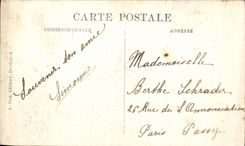 CARTE POSTALE
CORRESPONDANCE
ADRESSE
Souvenir ton amie
Simone
Mademoiselle
Berthe Schrader
25 Rue de l'Annonciation
Paris Passy